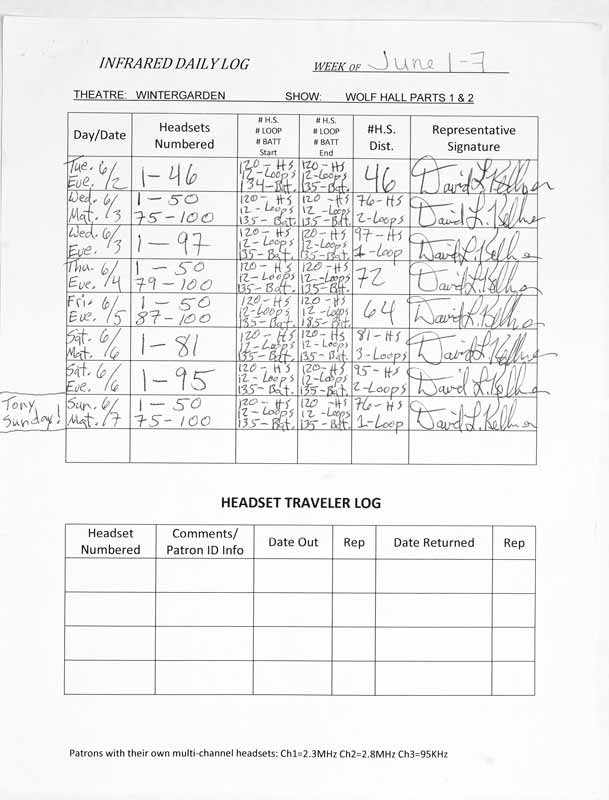 INFRARED DAILY LOG WEEK OF June 1-7
THEATRE: WINTERGARDEN SHOW: WOLF HALL PARTS 1 & 2
Day/Date Headsets Numbered # H.S. # LOOP # BATT Start # H.S. # LOOP # BATT End #H.S. Dist. Representative Signature
Tue. 6/2 Eve. 1-46 120-HS 12-Loops 134-Bat. 120-HS 12-Loops 135-Bat. 46 David L. Kellner
Wed. 6/3 Mat. 1-50 75-100 120-HS 12-Loops 135-Bat. 120-HS 12-Loops 135-Bat. 76-HS 2-Loops David L. Kellner
Wed. 6/3 Eve. 1-97 120-HS 12-Loops 135-Bat. 120-HS 12-Loops 135-Bat. 97-HS 1-Loop David L. Kellner
Thu. 6/4 Eve. 1-50 79-100 120-HS 12-Loops 135-Bat. 120-HS 12-Loops 135-Bat. 72 David L. Kellner
Fri. 6/5 Eve. 1-50 87-100 120-HS 12-Loops 135-Bat. 120-HS 12-Loops 185-Bat. 64 David L. Kellner
Sat. 6/6 Mat. 1-81 120-HS 12-Loops 135-Bat. 120-HS 12-Loops 135-Bat. 81-HS 3-Loops David L. Kellner
Sat. 6/6 Eve. 1-95 120-HS 12-Loops 135-Bat. 120-HS 12-Loops 135-Bat. 95-HS 2-Loops David L. Kellner
Tony Sunday! Sun. 6/7 Mat. 1-50 75-100 120-HS 12-Loops 135-Bat. 120-HS 12-Loops 135-Bat. 76-HS 1-Loop David L. Kellner
HEADSET TRAVELER LOG
Headset Numbered Comments/ Patron ID Info Date Out Rep Date Returned Rep
Patrons with their own multi-channel headsets: Ch1=2.3MHz Ch2=2.8MHz Ch3=95KHz